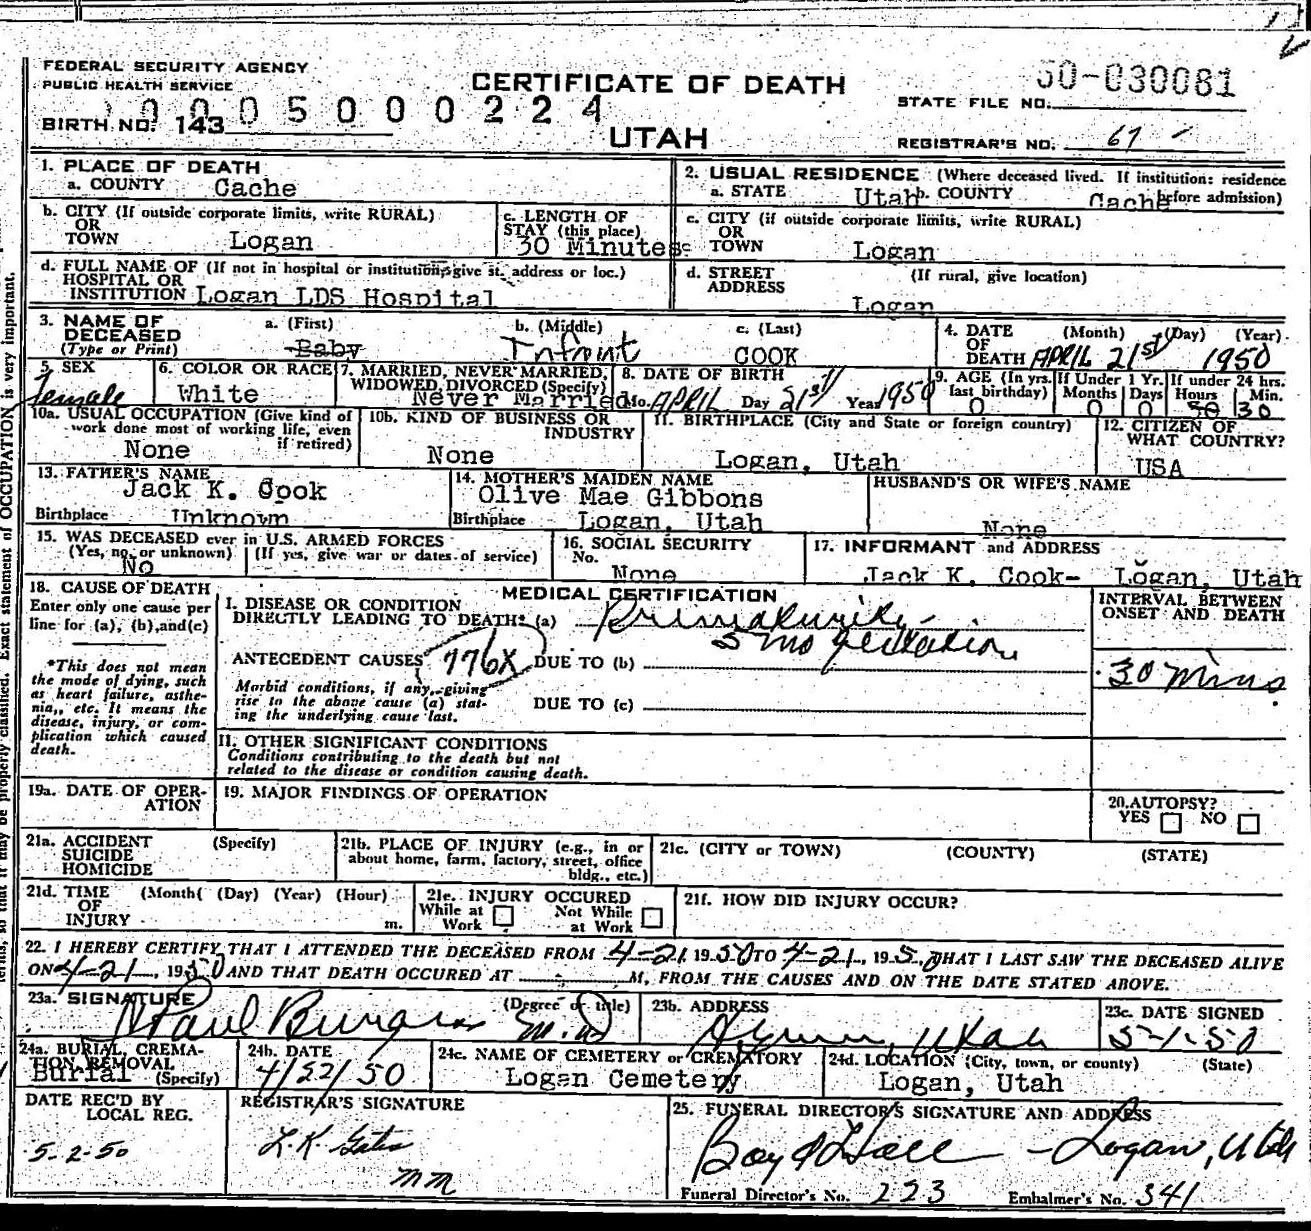 FEDERAL SECURITY AGENCY
PUBLIC HEALTH SERVICE
CERTIFICATE OF DEATH
UTAH
50-030081
STATE FILE NO.
0005000224
BIRTH NO. 143
REGISTRAR'S NO. 67
1. PLACE OF DEATH
a. COUNTY Cache
b. CITY (If outside corporate limits, write RURAL)
OR
TOWN Logan
c. LENGTH OF
STAY (this place)
30 Minutes
d. FULL NAME OF (If not in hospital or institution, give st. address or loc.)
HOSPITAL OR
INSTITUTION Logan LDS Hospital
2. USUAL RESIDENCE (Where deceased lived. If institution: residence
before admission)
a. STATE Utah b. COUNTY Cache
c. CITY (if outside corporate limits, write RURAL)
OR
TOWN Logan
d. STREET (If rural, give location)
ADDRESS
Logan
3. NAME OF
DECEASED
(Type or Print)
a. (First) Baby
b. (Middle) Infant
c. (Last) COOK
4. DATE (Month) (Day) (Year)
OF
DEATH APRIL 21st 1950
5. SEX
Female
6. COLOR OR RACE
White
7. MARRIED, NEVER MARRIED,
WIDOWED, DIVORCED (Specify)
Never Married
8. DATE OF BIRTH
Mo. APRIL Day 21st Year 1950
9. AGE (In yrs. last birthday) 0
If Under 1 Yr. Months 0 Days 0
If under 24 hrs. Hours Min. 30
10a. USUAL OCCUPATION (Give kind of
work done most of working life, even
if retired)
None
10b. KIND OF BUSINESS OR
INDUSTRY
None
11. BIRTHPLACE (City and State or foreign country)
Logan, Utah
12. CITIZEN OF
WHAT COUNTRY?
USA
13. FATHER'S NAME
Jack K. Cook
Birthplace Unknown
14. MOTHER'S MAIDEN NAME
Olive Mae Gibbons
Birthplace Logan, Utah
HUSBAND'S OR WIFE'S NAME
None
15. WAS DECEASED ever in U.S. ARMED FORCES
(Yes, no, or unknown) (If yes, give war or dates of service)
No
16. SOCIAL SECURITY
No.
None
17. INFORMANT and ADDRESS
Jack K. Cook- Logan, Utah
18. CAUSE OF DEATH
Enter only one cause per
line for (a), (b), and (c)
*This does not mean
the mode of dying, such
as heart failure, asthe-
nia, etc. It means the
disease, injury, or com-
plication which caused
death.
MEDICAL CERTIFICATION
I. DISEASE OR CONDITION
DIRECTLY LEADING TO DEATH* (a) Primaturity-
5 mo gestation
ANTECEDENT CAUSES 776X DUE TO (b)
Morbid conditions, if any, giving
rise to the above cause (a) stat-
ing the underlying cause last.
DUE TO (c)
II. OTHER SIGNIFICANT CONDITIONS
Conditions contributing to the death but not
related to the disease or condition causing death.
INTERVAL BETWEEN
ONSET AND DEATH
30 mins
19a. DATE OF OPER-
ATION
19. MAJOR FINDINGS OF OPERATION
20. AUTOPSY?
YES NO
21a. ACCIDENT (Specify)
SUICIDE
HOMICIDE
21b. PLACE OF INJURY (e.g., in or
about home, farm, factory, street, office
bldg., etc.)
21c. (CITY or TOWN) (COUNTY) (STATE)
21d. TIME (Month) (Day) (Year) (Hour)
OF
INJURY m.
21e. INJURY OCCURED
While at Work Not While at Work
21f. HOW DID INJURY OCCUR?
22. I HEREBY CERTIFY THAT I ATTENDED THE DECEASED FROM 4-21, 1950 TO 4-21, 1950, THAT I LAST SAW THE DECEASED ALIVE
ON 4-21, 1950 AND THAT DEATH OCCURED AT M., FROM THE CAUSES AND ON THE DATE STATED ABOVE.
23a. SIGNATURE (Degree or title)
Paul Burgess M.D.
23b. ADDRESS
Utah
23c. DATE SIGNED
5-1-50
24a. BURIAL, CREMA-
TION, REMOVAL
(Specify)
Burial
24b. DATE
4/22/50
24c. NAME OF CEMETERY or CREMATORY
Logan Cemetery
24d. LOCATION (City, town, or county) (State)
Logan, Utah
DATE REC'D BY
LOCAL REG.
5-2-50
REGISTRAR'S SIGNATURE
L. K. Gates
mm
25. FUNERAL DIRECTOR'S SIGNATURE AND ADDRESS
Hall - Logan, Utah
Funeral Director's No. 223 Embalmer's No. 341
terms, so that it may be properly classified. Exact statement of OCCUPATION is very important.